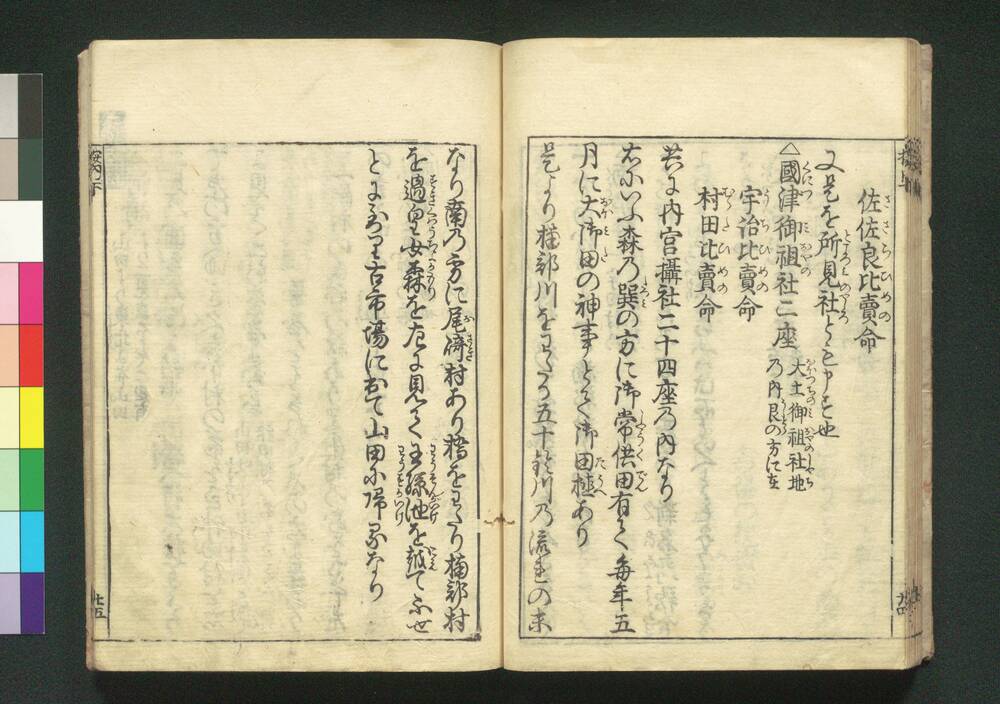 佐佐良比賣命
又是を所見社とも申す也
△國津御祖社二座 大土御祖社地
乃内艮の方に在
宇治比賣命
村田比賣命
共に内宮攝社二十四座乃内なり
右にいふ森乃巽の方に御常供田有て毎年五
月に大御田の神事とて御田植あり
是より楠部川をわたる五十鈴川乃流れの末
なり南乃方に尾崎村あり橋をわたり楠部村
を過皇女森を左に見て王孫池を越て
とに至り古市場に出て山田に帰るなり